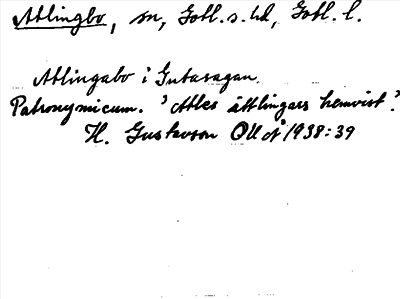 Atlingbo, sn, Gotl. s. hd, Gotl. l.
Atlingabo i Gutasagan.
Patronymicum. 'Atles ättlingars hemvist'.
H. Gustavson OUoÅ 1938:39